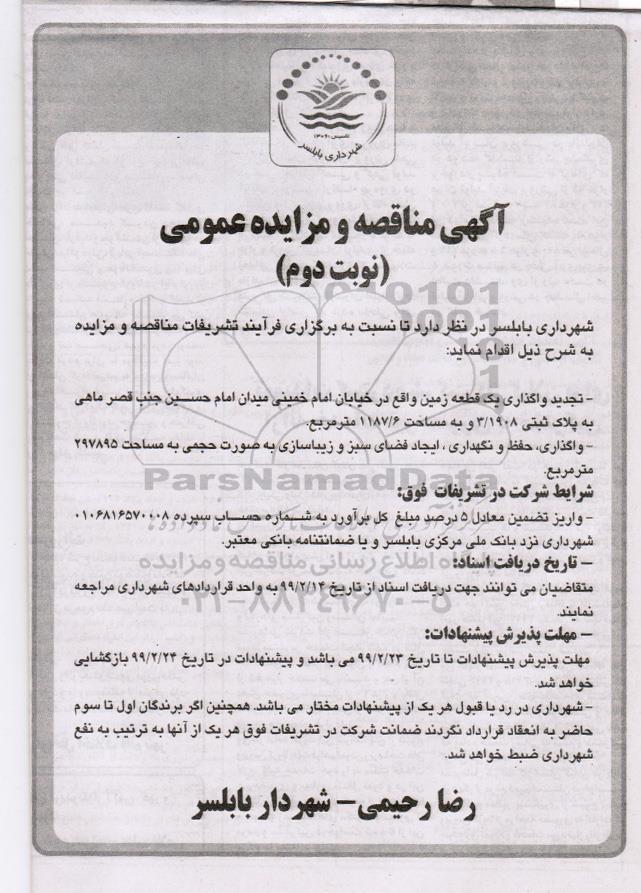 تاسیس ۱۳۰۶
شهرداری بابلسر
آگهی مناقصه و مزایده عمومی
(نوبت دوم)
شهرداری بابلسر در نظر دارد تا نسبت به برگزاری فرآیند تشریفات مناقصه و مزایده
به شرح ذیل اقدام نماید:
- تجدید واگذاری یک قطعه زمین واقع در خیابان امام خمینی میدان امام حسین جنب قصر ماهی
به پلاک ثبتی ۳/۱۹۰۸ و به مساحت ۱۱۸۷/۶ مترمربع.
- واگذاری، حفظ و نگهداری ، ایجاد فضای سبز و زیباسازی به صورت حجمی به مساحت ۲۹۷۸۹۵
مترمربع.
شرایط شرکت در تشریفات فوق:
- واریز تضمین معادل ۵ درصد مبلغ کل برآورد به شماره حساب سپرده ۰۱۰۶۸۱۶۵۷۰۰۰۸
شهرداری نزد بانک ملی مرکزی بابلسر و یا ضمانتنامه بانکی معتبر.
- تاریخ دریافت اسناد:
متقاضیان می توانند جهت دریافت اسناد از تاریخ ۹۹/۲/۱۴ به واحد قراردادهای شهرداری مراجعه
نمایند.
- مهلت پذیرش پیشنهادات:
مهلت پذیرش پیشنهادات تا تاریخ ۹۹/۲/۲۳ می باشد و پیشنهادات در تاریخ ۹۹/۲/۲۴ بازگشایی
خواهد شد.
- شهرداری در رد یا قبول هر یک از پیشنهادات مختار می باشد. همچنین اگر برندگان اول تا سوم
حاضر به انعقاد قرارداد نگردند ضمانت شرکت در تشریفات فوق هر یک از آنها به ترتیب به نفع
شهرداری ضبط خواهد شد.
رضا رحیمی - شهردار بابلسر
ParsNamadData
پایگاه اطلاع رسانی مناقصه و مزایده
۰۲۱-۸۸۳۴۹۶۷۰-۵